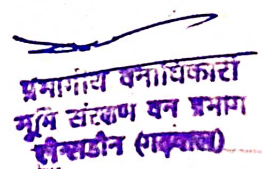 प्रभागीय वनाधिकारी
भूमि संरक्षण वन प्रभाग
लैन्सडौन (गढ़वाल)